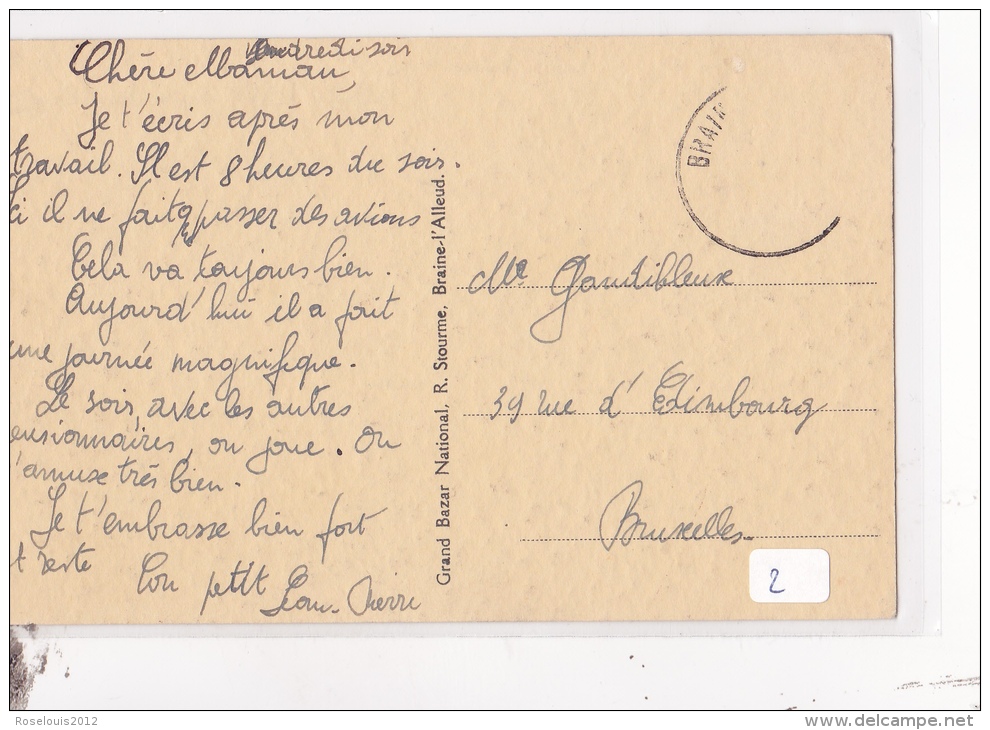 Vendredi soir
Chère Maman,
Je t'écris après mon
travail. Il est 8 heures du soir.
ci il ne fait q passer des avions
Cela va toujours bien.
Aujourd'hui il a fait
une journée magnifique.
Le soir, avec les autres
ensionnaires, on joue. On
'amuse très bien.
Je t'embrasse bien fort
t reste
Ton petit Jean-Pierre
Grand Bazar National, R. Stourme, Braine-l'Alleud.
BRAIN
Me Gaudibleux
39 rue d'Edimbourg
Bruxelles
2
Roselouis2012
www.delcampe.net